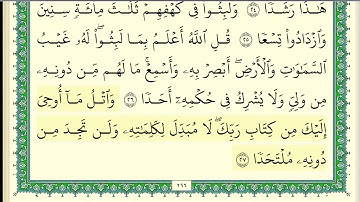 هَـٰذَا رَشَدًا ۝٢٤ وَلَبِثُوا۟ فِى كَهْفِهِمْ ثَلَـٰثَ مِا۟ئَةٍ سِنِينَ
وَٱزْدَادُوا۟ تِسْعًا ۝٢٥ قُلِ ٱللَّهُ أَعْلَمُ بِمَا لَبِثُوا۟ ۖ لَهُۥ غَيْبُ
ٱلسَّمَـٰوَٰتِ وَٱلْأَرْضِ ۖ أَبْصِرْ بِهِۦ وَأَسْمِعْ ۚ مَا لَهُم مِّن دُونِهِۦ
مِن وَلِىٍّ وَلَا يُشْرِكُ فِى حُكْمِهِۦٓ أَحَدًا ۝٢٦ وَٱتْلُ مَآ أُوحِىَ
إِلَيْكَ مِن كِتَابِ رَبِّكَ ۖ لَا مُبَدِّلَ لِكَلِمَـٰتِهِۦ وَلَن تَجِدَ مِن
دُونِهِۦ مُلْتَحَدًا ۝٢٧
٢٩٦